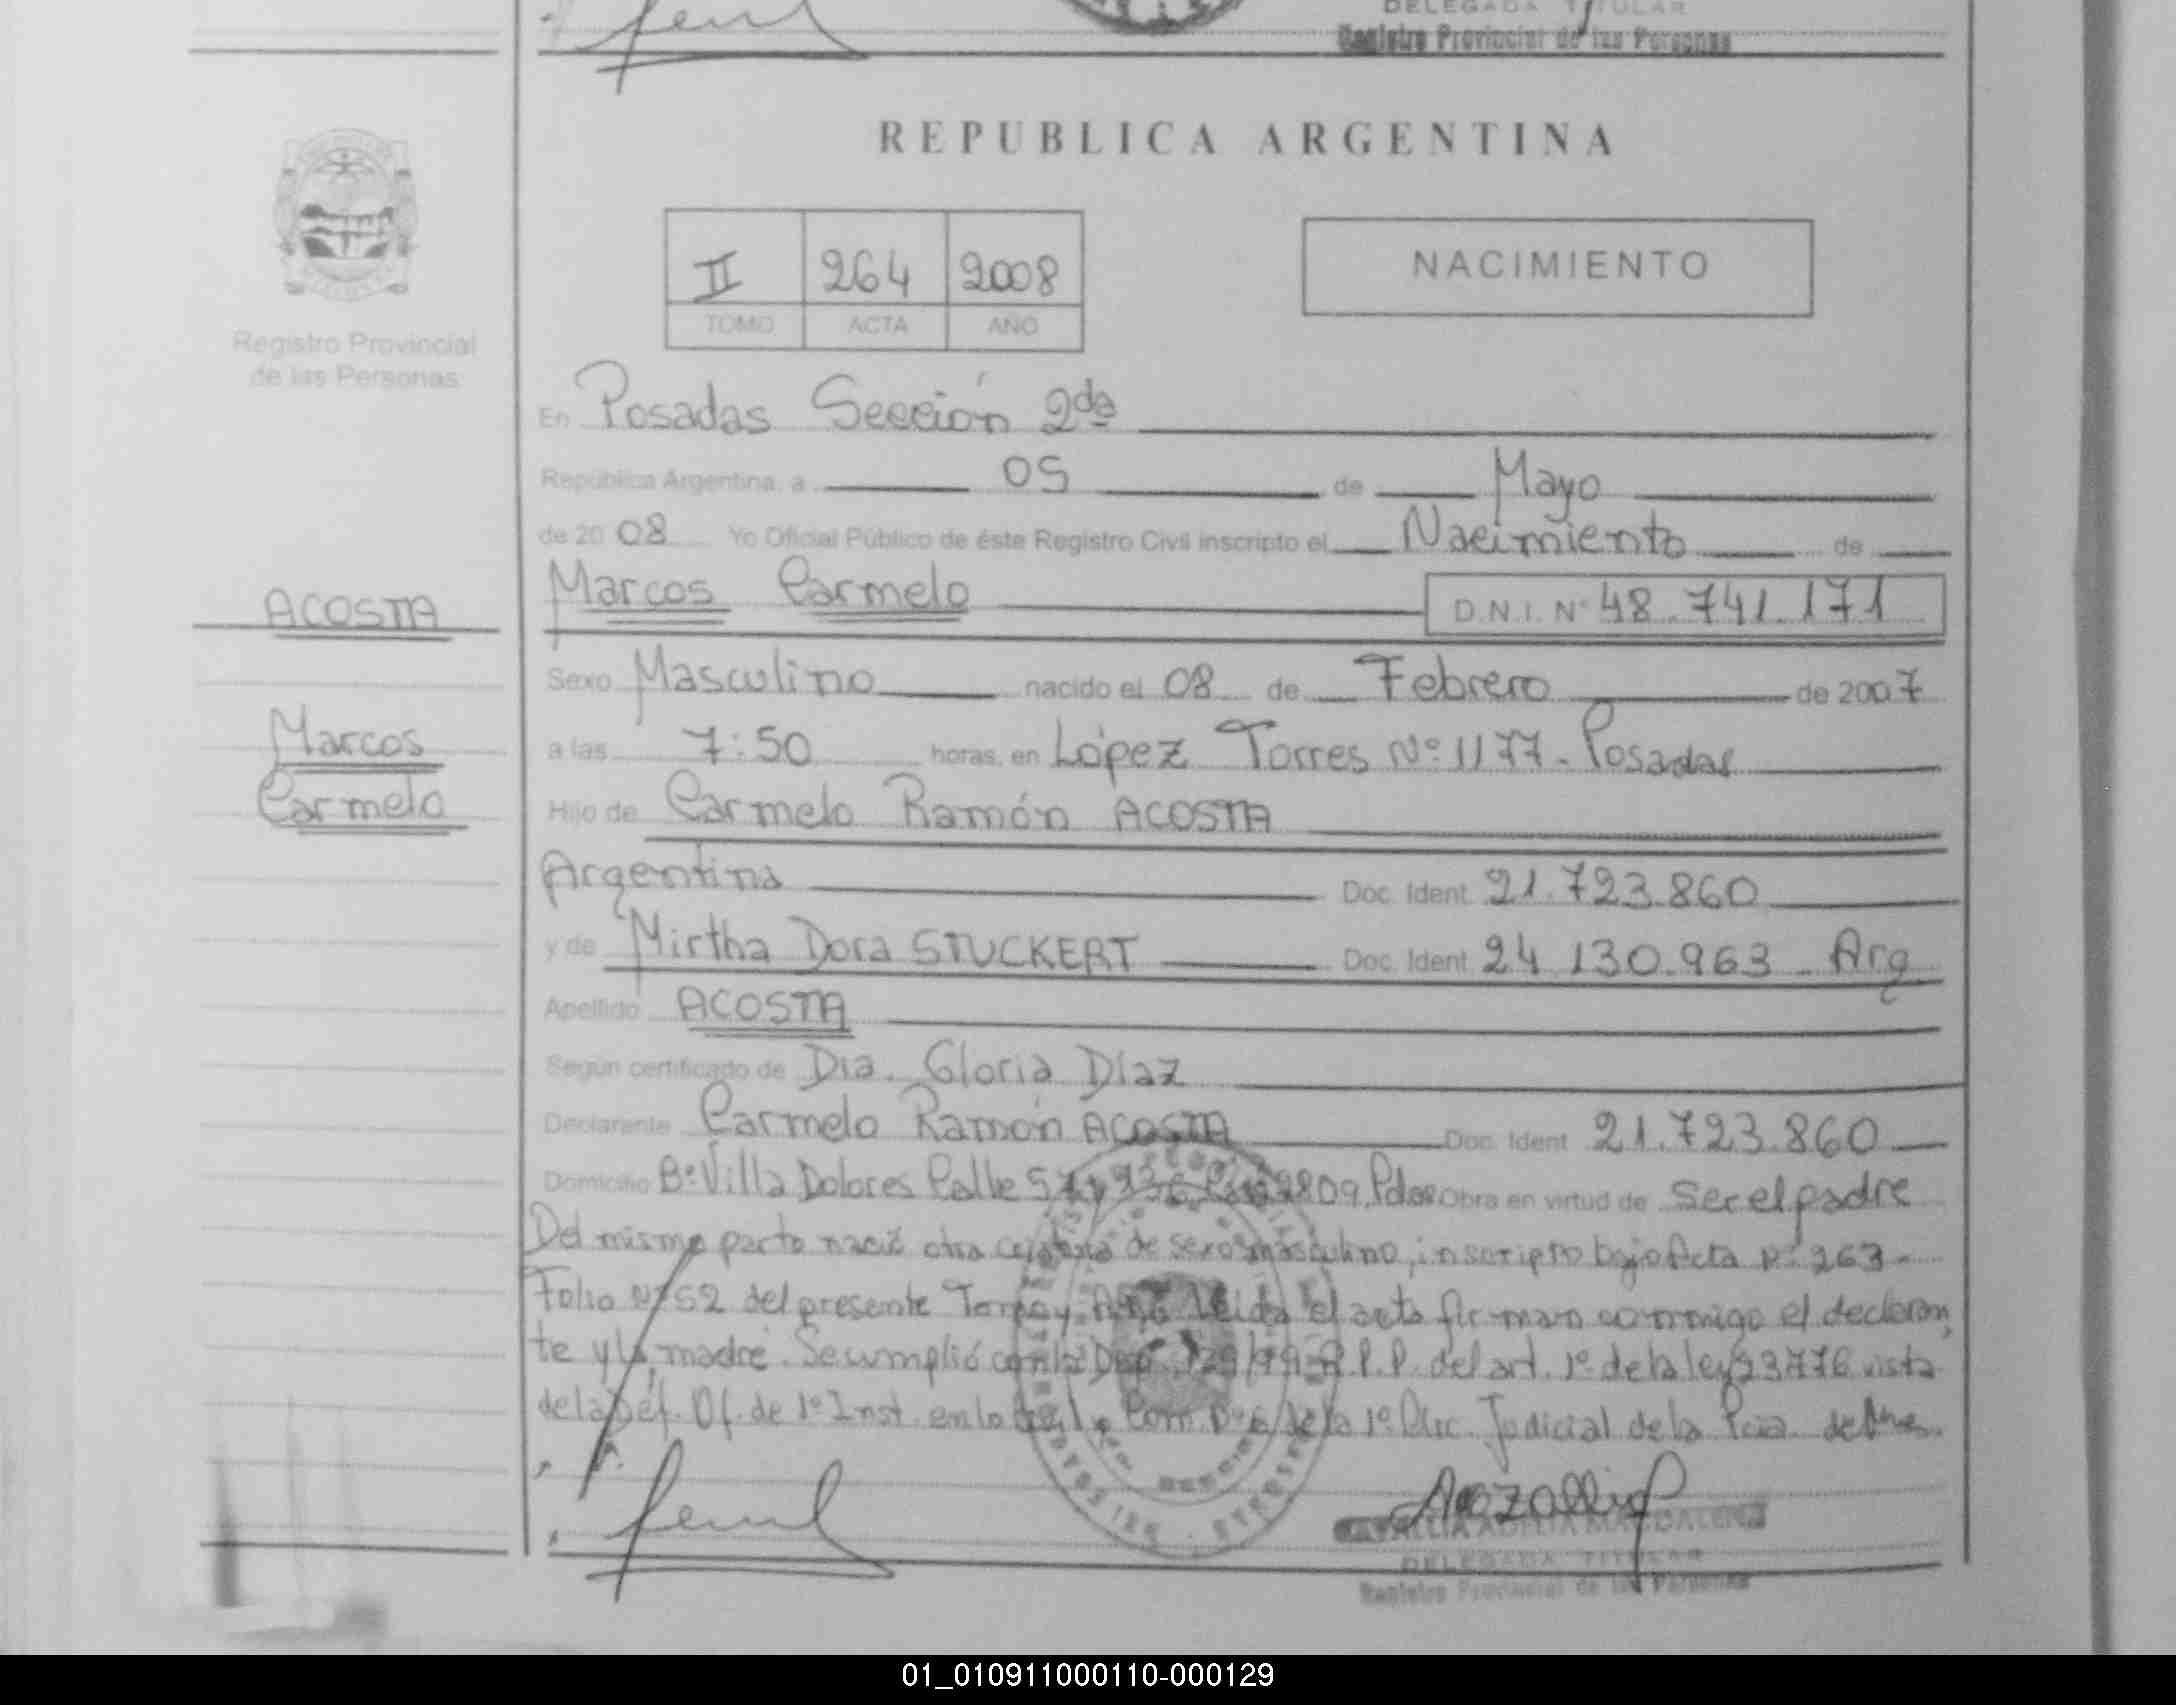 DELEGADA TITULAR
Registro Provincial de las Personas
REPUBLICA ARGENTINA
II 264 2008
TOMO ACTA AÑO
NACIMIENTO
Registro Provincial
de las Personas
En Posadas Sección 2da
República Argentina, a 05 de Mayo
de 2008 Yo Oficial Público de éste Registro Civil inscripto el Nacimiento de
ACOSTA
Marcos Carmelo D.N.I. Nº 48.741.171
Sexo Masculino nacido el 08 de Febrero de 2007
Marcos
Carmelo
a las 7:50 horas, en López Torres Nº 1177 - Posadas
Hijo de Carmelo Ramón ACOSTA
Argentina Doc. Ident. 21.723.860
y de Mirtha Dora STUCKERT Doc. Ident. 24 130.963 - Arg
Apellido ACOSTA
Según certificado de Dra. Gloria Díaz
Declarante Carmelo Ramón ACOSTA Doc. Ident. 21.723.860
Domicilio Bº Villa Dolores Calle 2809 Obra en virtud de Ser el padre
Del mismo parto nació otra criatura de sexo masculino, inscripto bajo Acta Nº 263 -
Folio Nº 52 del presente Tomo y Año Leída el acta firman conmigo el declaran
te y la madre. Se cumplió con la R.P.P. del art. 1º de la ley 23776 vista
de la Def. Of. de 1º Inst. en lo de la 1º Circ. Judicial de la Pcia. de Mnes.
ADELIA MAGDALENA
DELEGADA TITULAR
Registro Provincial de las Personas
01_010911000110-000129